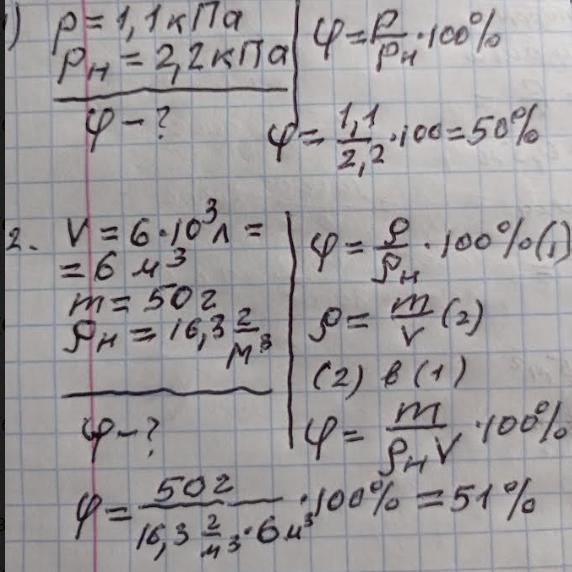 1) p = 1,1 кПа
pн = 2,2 кПа
φ - ?
φ = p/pн · 100%
φ = 1,1/2,2 · 100 = 50%
2. V = 6 · 10³ л =
= 6 м³
m = 50 г
ρн = 16,3 г/м³
φ - ?
φ = ρ/ρн · 100% (1)
ρ = m/V (2)
(2) в (1)
φ = m/ρнV · 100%
φ = 50 г/16,3 г/м³ · 6 м³ · 100% = 51%